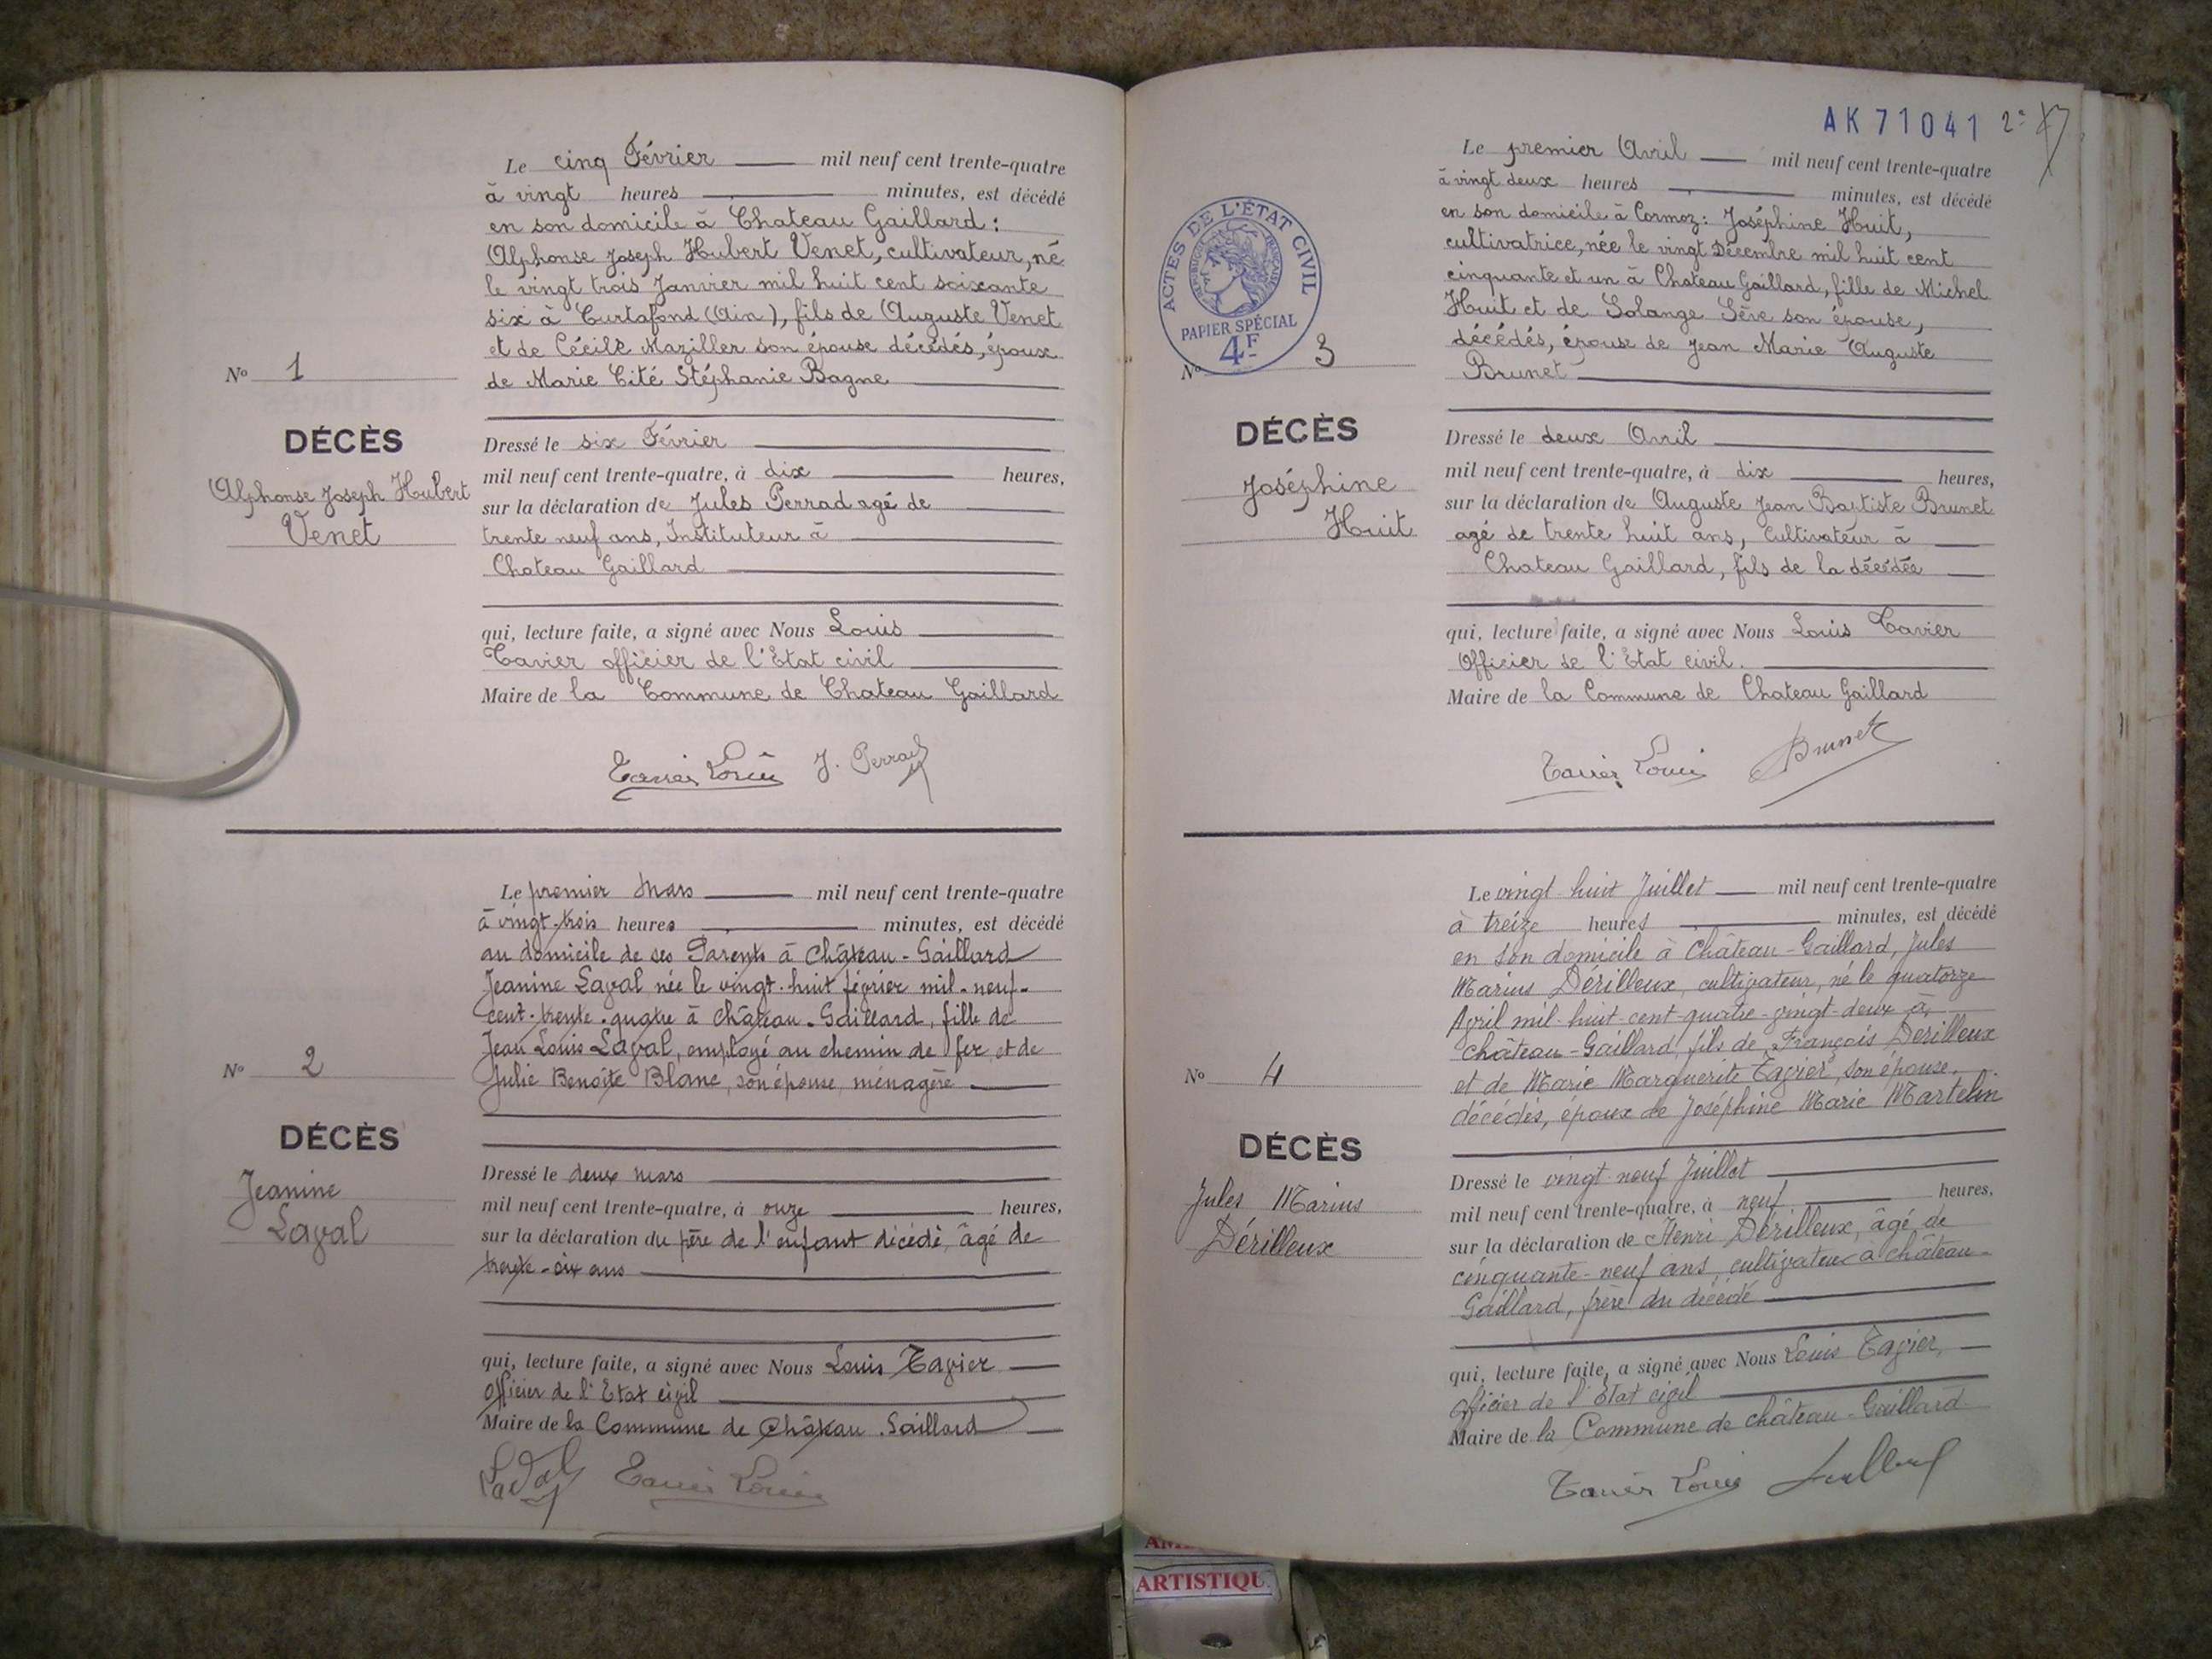 Le cinq Février mil neuf cent trente-quatre
à vingt heures minutes, est décédé
en son domicile à Chateau Gaillard :
Alphonse Joseph Hubert Venet, cultivateur, né
le vingt trois Janvier mil huit cent soixante
six à Curtafond (Ain), fils de Auguste Venet
et de Cécile Maziller son épouse décédés, époux
de Marie Cité Stéphanie Bagne
No 1
DÉCÈS
Alphonse Joseph Hubert
Venet
Dressé le six Février
mil neuf cent trente-quatre, à dix heures,
sur la déclaration de Jules Perrad agé de
trente neuf ans, Instituteur à
Chateau Gaillard
qui, lecture faite, a signé avec Nous Louis
Tavier officier de l'Etat civil
Maire de la Commune de Chateau Gaillard
Tavier Louis J. Perrad
Le premier Mars mil neuf cent trente-quatre
à vingt-trois heures minutes, est décédé
au domicile de ses Parents à Château-Gaillard
Jeanine Laval née le vingt-huit février mil-neuf-
cent-trente-quatre à Château-Gaillard, fille de
Jean Louis Laval, employé au chemin de fer, et de
Julie Benoite Blanc, son épouse, ménagère
No 2
DÉCÈS
Jeanine
Laval
Dressé le deux mars
mil neuf cent trente-quatre, à onze heures,
sur la déclaration du père de l'enfant décédé, âgé de
trente-six ans
qui, lecture faite, a signé avec Nous Louis Tavier
Officier de l'Etat civil
Maire de la Commune de Château-Gaillard
Laval Tavier Louis
AK 71041 2e
Le premier Avril mil neuf cent trente-quatre
à vingt deux heures minutes, est décédé
en son domicile à Cormoz : Joséphine Huit,
cultivatrice, née le vingt Décembre mil huit cent
cinquante et un à Chateau Gaillard, fille de Michel
Huit et de Solange Sève son épouse,
décédés, épouse de Jean Marie Auguste
Brunet
ACTES DE L'ÉTAT CIVIL
RÉPUBLIQUE FRANÇAISE
PAPIER SPÉCIAL
4F
No 3
DÉCÈS
Joséphine
Huit
Dressé le deux Avril
mil neuf cent trente-quatre, à dix heures,
sur la déclaration de Auguste Jean Baptiste Brunet
agé de trente huit ans, Cultivateur à
Chateau Gaillard, fils de la décédée
qui, lecture faite, a signé avec Nous Louis Tavier
Officier de l'Etat civil.
Maire de la Commune de Chateau Gaillard
Tavier Louis Brunet
Le vingt huit Juillet mil neuf cent trente-quatre
à treize heures minutes, est décédé
en son domicile à Château-Gaillard, Jules
Marius Dérilleux, cultivateur, né le quatorze
Avril mil-huit-cent-quatre-vingt-deux à
château-Gaillard, fils de François Dérilleux
et de Marie Marguerite Tavier, son épouse,
décédés, époux de Joséphine Marie Martelin
No 4
DÉCÈS
Jules Marius
Dérilleux
Dressé le vingt-neuf Juillet
mil neuf cent trente-quatre, à neuf heures,
sur la déclaration de Henri Dérilleux, âgé de
cinquante-neuf ans, cultivateur à château-
Gaillard, frère du décédé
qui, lecture faite, a signé avec Nous Louis Tavier,
officier de l'Etat civil
Maire de la Commune de château-Gaillard
Tavier Louis
ARTISTIQU